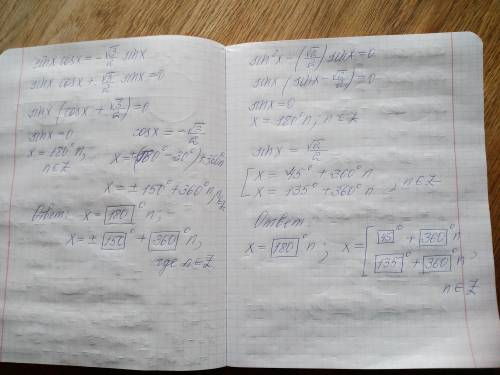 sinx cosx = -√3/2 sinx
sinx cosx + √3/2 sinx = 0
sinx (cosx + √3/2) = 0
sinx = 0 cosx = -√3/2
x = 180° n, x = ±(180° - 30°) + 360° n
n ∈ Z
x = ± 150° + 360° n, n ∈ Z
Ответ: x = 180° n;
x = ± 150° + 360° n,
где n ∈ Z
sin²x - (√2/2) sinx = 0
sinx (sinx - √2/2) = 0
sinx = 0
x = 180° n, n ∈ Z
sinx = √2/2
[ x = 45° + 360° n
x = 135° + 360° n, n ∈ Z
Ответ
x = 180° n; x = [ 45° + 360° n
135° + 360° n,
n ∈ Z